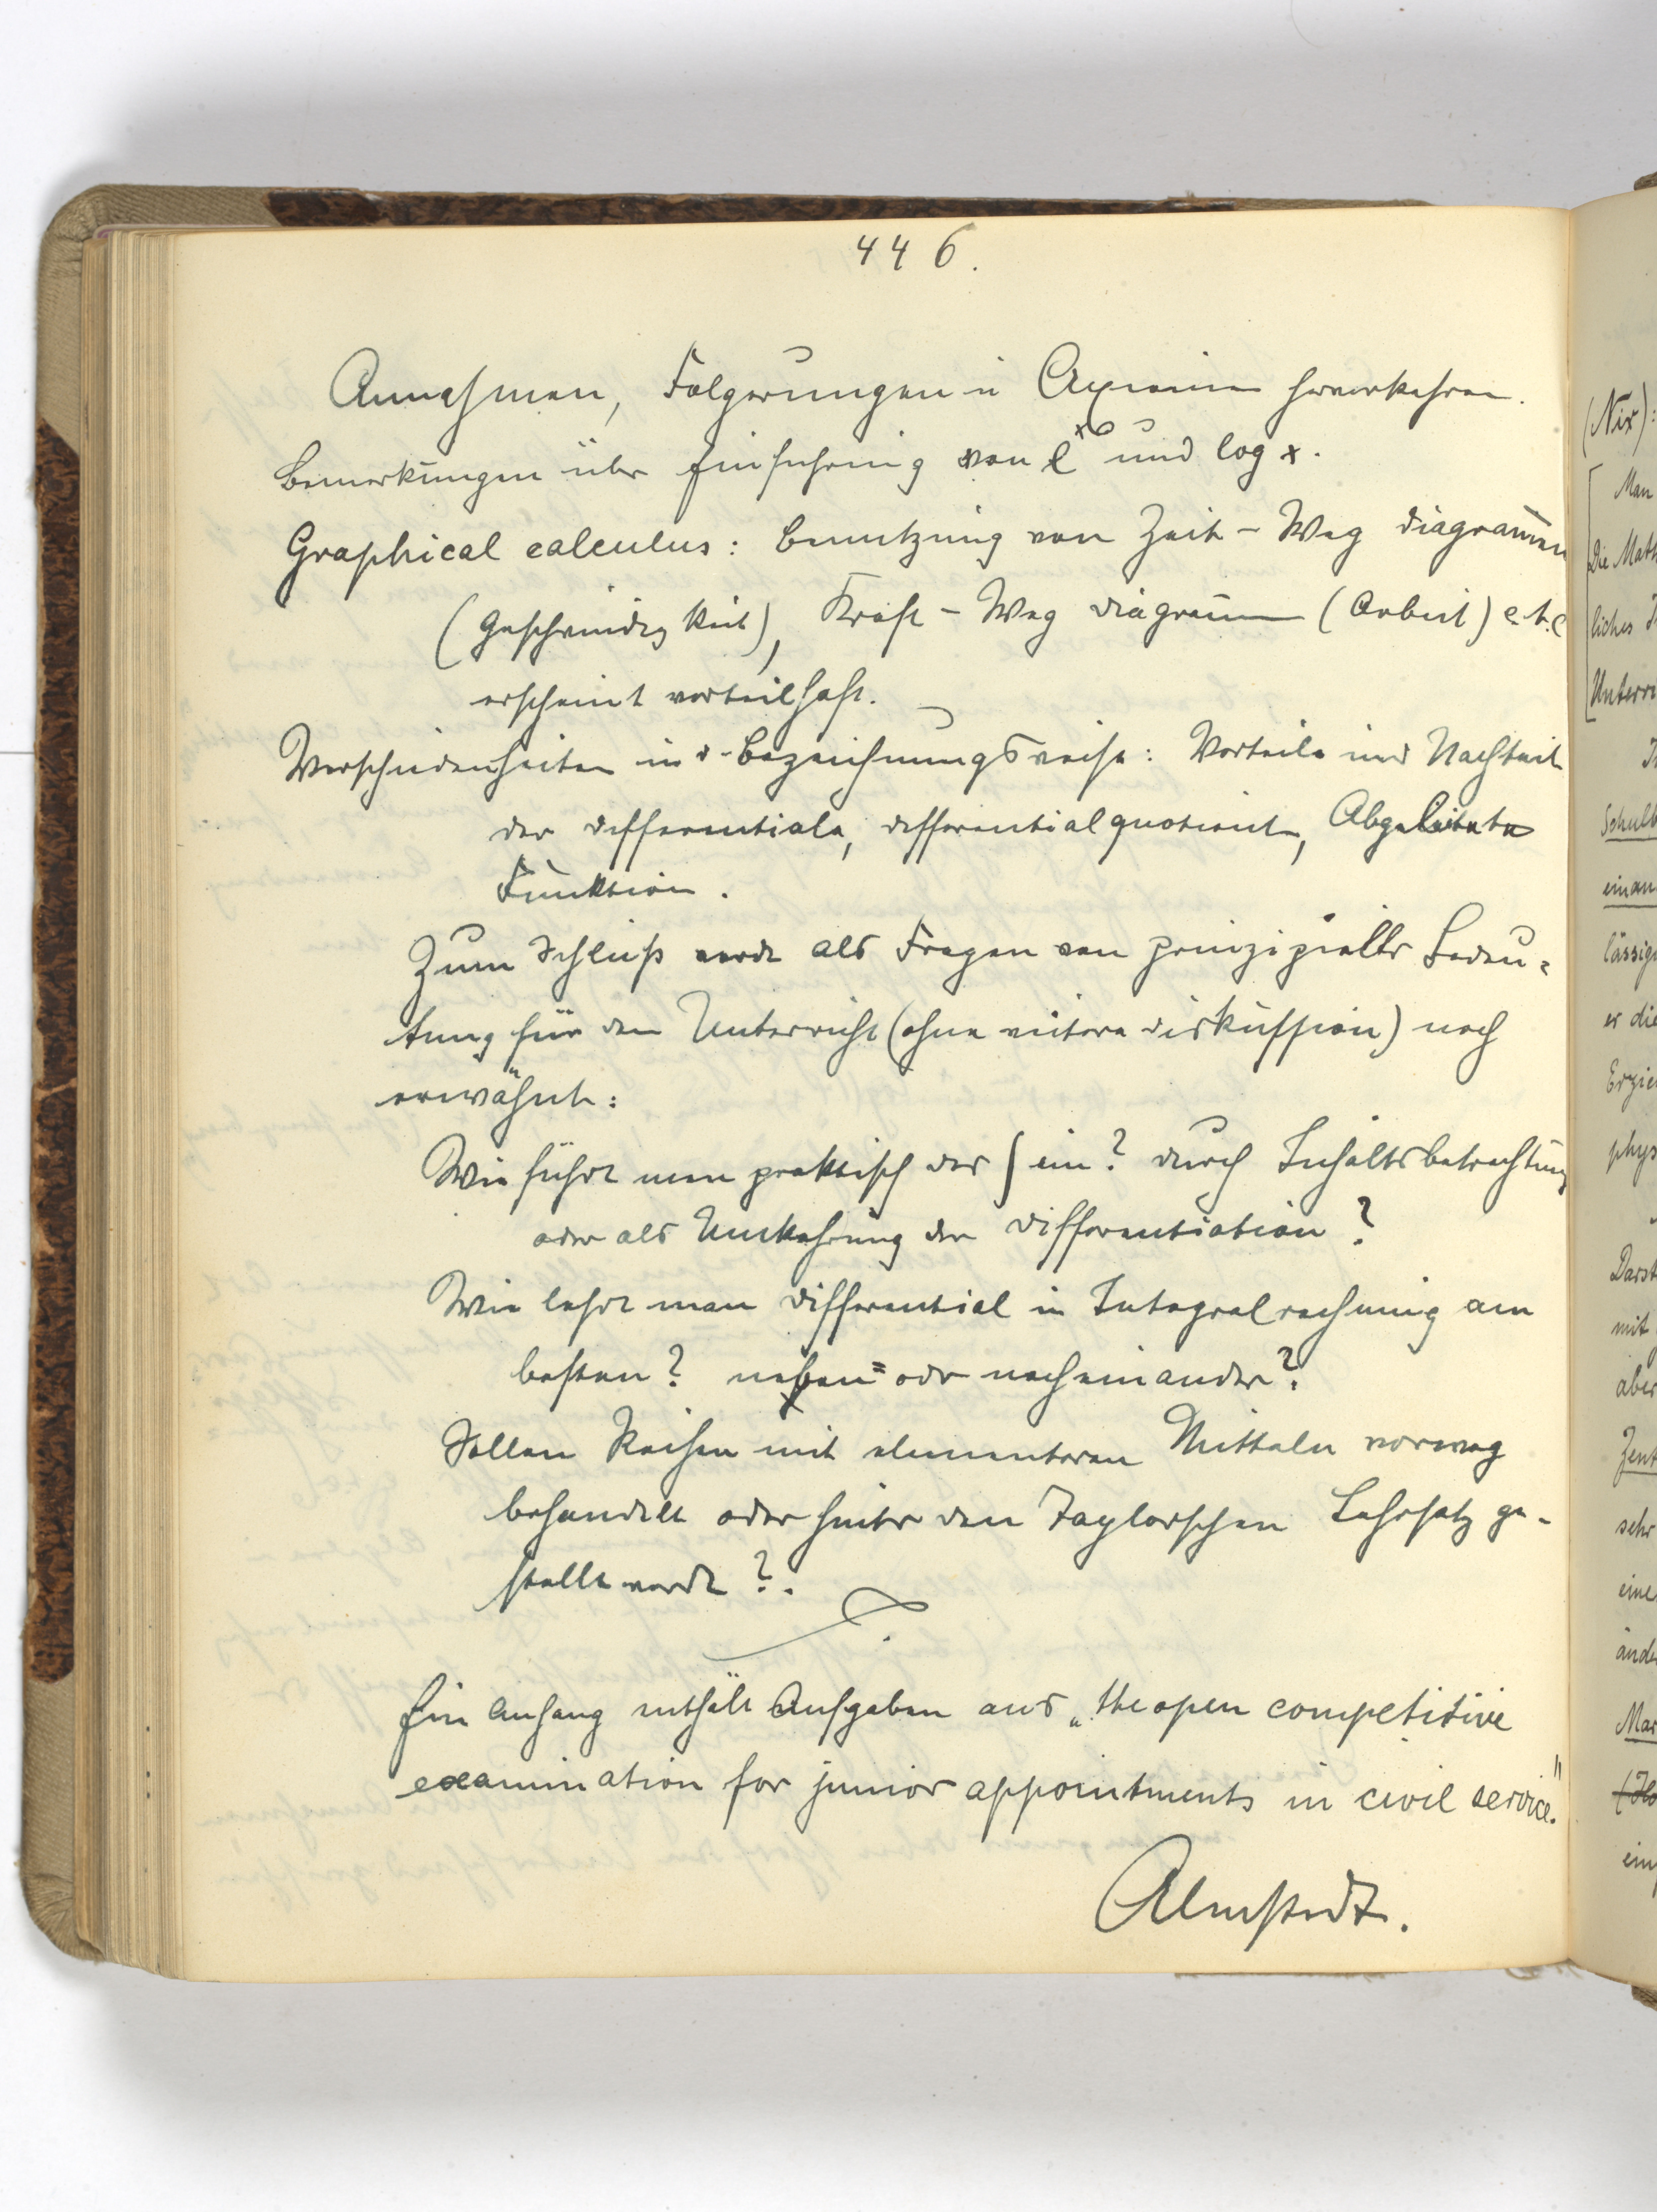 446.
Annahmen, Folgerungen u Axiome hervorkehren.
Bemerkungen über Einführung von e^x und log x.
Graphical calculus: Benutzung von Zeit - Weg diagrammen
(Geschwindigkeit), Kraft - Weg diagramm (Arbeit) e.t.c
erscheint vorteilhaft.
Verschiedenheiten in d. Bezeichnungsweise: Vorteile und Nachteile
der differentiale, differentialquotient, Abgeleitete
Funktion.
Zum Schluß werde als Fragen von prinzipieller Bedeu=
tung für den Unterricht (ohne weitere diskussion) noch
erwähnt:
Wie führt man praktisch das ∫ ein? durch Inhaltsbetrachtung
oder als Umkehrung der differentiation?
Wie lehrt man differential u Integralrechnung am
besten? neben= oder nacheinander?
Sollen Reihen mit elementaren Mitteln vorweg
behandelt oder hinter den Taylorschen Lehrsatz ge-
stellt werde?.
Ein Anhang enthält Aufgaben aus „the open competitive
examination for junior appointments in civil service."
Almstedt.
(Nix):
Man
Die Math
liches
Unterri
Schulb
einan
lässig
er die
Erzie
phys
Darst
mit
aber
Zent
sehr
eine
ände
Mar
ein